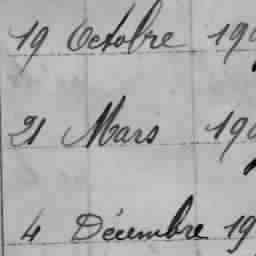 19 Octobre 190
21 Mars 190
4 Décembre 19